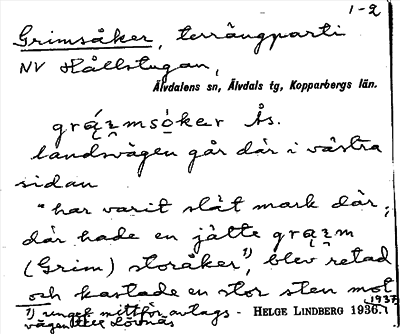 1-2
Grimsåker, terrängparti
NV Hållstugan,
Älvdalens sn, Älvdals tg, Kopparbergs län.
grą́i̯msǫ́ker Ås.
landsvägen går där i västra
sidan
"har varit slät mark där,
där hade en jätte grąi̯m
(Grim) storåker¹⁾, blev retad
och kastade en stor sten mot
1) ungef. mittför avtags-
vägen till Lövnäs
HELGE LINDBERG 1936.
1937